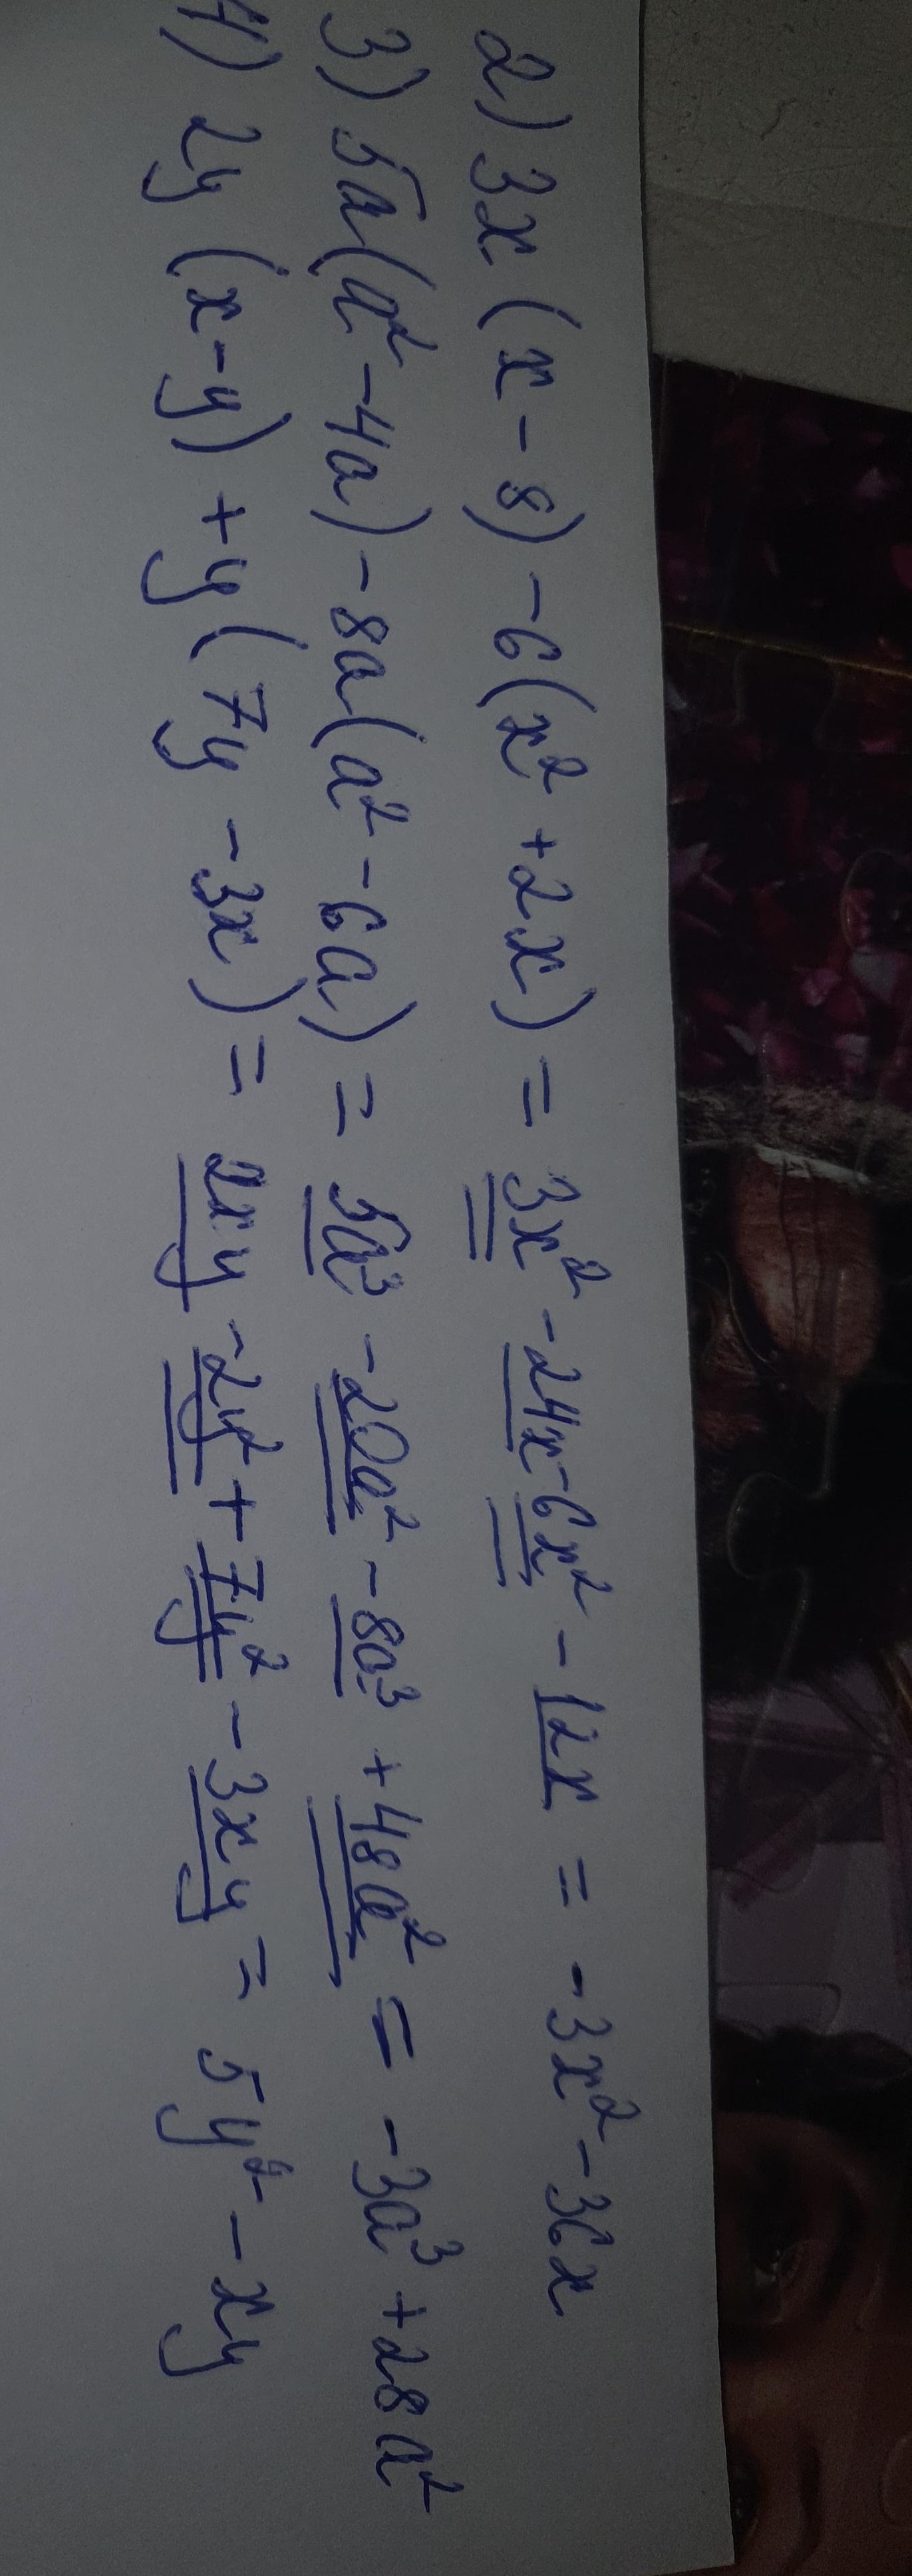 2) 3x (x - 8) - 6(x² + 2x) = 3x² - 24x - 6x² - 12x = -3x² - 36x
3) 5a(a² - 4a) - 8a(a² - 6a) = 5a³ - 20a² - 8a³ + 48a² = -3a³ + 28a²
4) 2y (x - y) + y(7y - 3x) = 2xy - 2y² + 7y² - 3xy = 5y² - xy